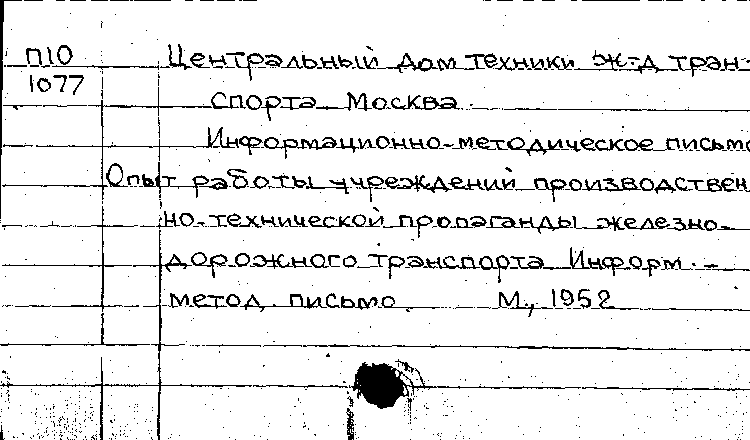 П10
1077
Центральный дом техники ж-д тран-
спорта Москва.
Информационно-методическое письмо
Опыт работы учреждений производствен
но-технической пропаганды железно-
дорожного транспорта Информ.-
метод. письмо. М., 1952